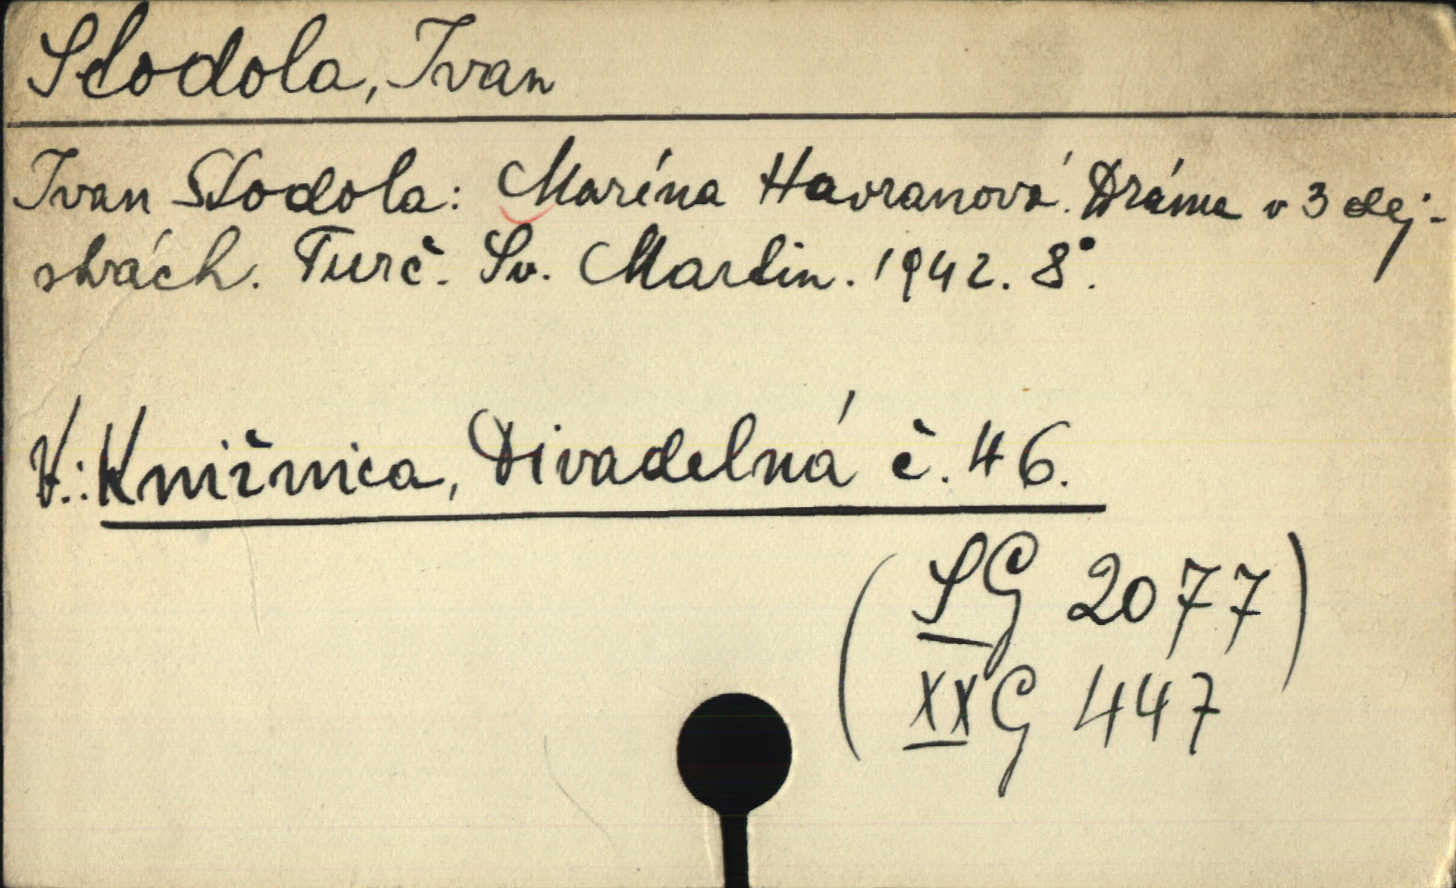 Stodola, Ivan
Ivan Stodola: Marína Havranová. Dráma v 3 dej-
stvách. Turč. Sv. Martin. 1942. 8°.
V.: Knižnica, Divadelná č. 46.
(SG 2077)
XXG 447